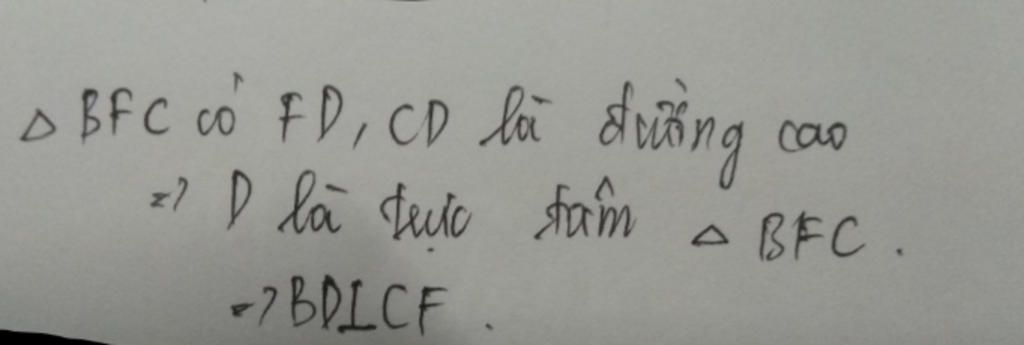 △ BFC có FD, CD là đường cao
=> D là trực tâm △ BFC.
=> BD⊥CF.